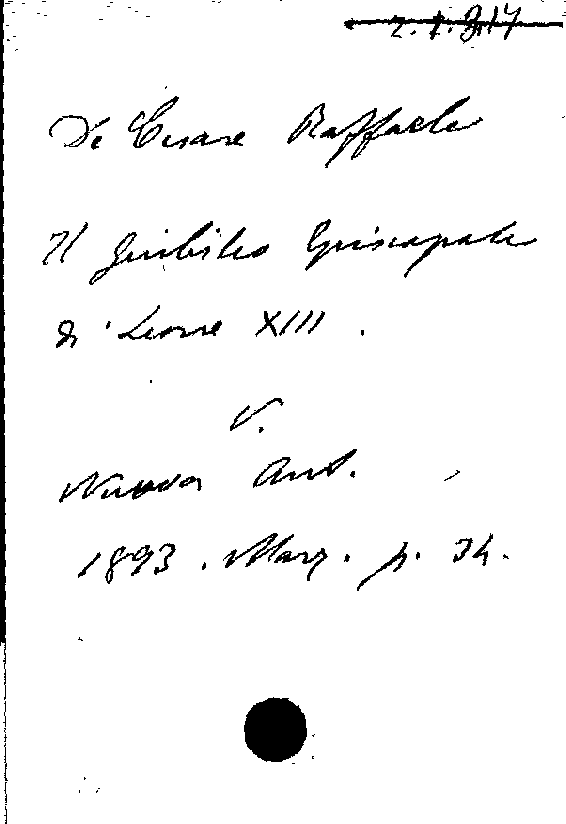 De Cesare Raffaele
Il Giubileo Episcopale
di Leone XIII.
V.
Nuova Ant.
1893. Marz. p. 34.